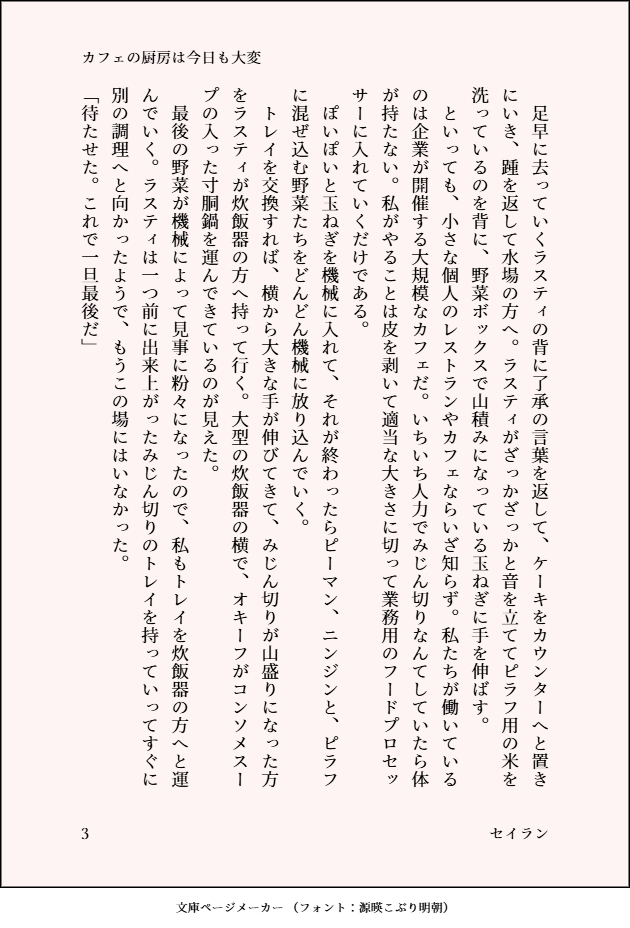 カフェの厨房は今日も大変
　足早に去っていくラスティの背に了承の言葉を返して、ケーキをカウンターへと置き
にいき、踵を返して水場の方へ。ラスティがざっかざっかと音を立ててピラフ用の米を
洗っているのを背に、野菜ボックスで山積みになっている玉ねぎに手を伸ばす。
　といっても、小さな個人のレストランやカフェならいざ知らず。私たちが働いている
のは企業が開催する大規模なカフェだ。いちいち人力でみじん切りなんてしていたら体
が持たない。私がやることは皮を剥いて適当な大きさに切って業務用のフードプロセッ
サーに入れていくだけである。
　ぽいぽいと玉ねぎを機械に入れて、それが終わったらピーマン、ニンジンと、ピラフ
に混ぜ込む野菜たちをどんどん機械に放り込んでいく。
　トレイを交換すれば、横から大きな手が伸びてきて、みじん切りが山盛りになった方
をラスティが炊飯器の方へ持って行く。大型の炊飯器の横で、オキーフがコンソメスー
プの入った寸胴鍋を運んできているのが見えた。
　最後の野菜が機械によって見事に粉々になったので、私もトレイを炊飯器の方へと運
んでいく。ラスティは一つ前に出来上がったみじん切りのトレイを持っていってすぐに
別の調理へと向かったようで、もうこの場にはいなかった。
「待たせた。これで一旦最後だ」
3
セイラン
文庫ページメーカー（フォント：源暎こぶり明朝）